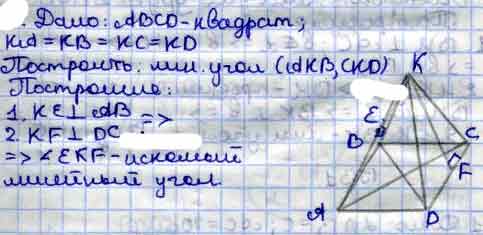 . Дано: ABCD-квадрат;
KA = KB = KC = KD
Построить. лин. угол (AKB, CKD)
Построение:
1. KE⊥AB
=>
2. KF⊥DC
=> ∠EKF-искомый
линейный угол
K
E
B
C
F
A
D